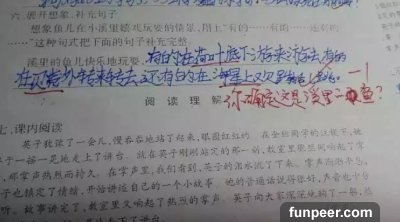 六 展开想象，补充句子
想象鱼儿在小溪里嬉戏玩耍的情景，用上“有的……有的……还有的
……”这种句式把下面的句子补充完整。
溪里的鱼儿快乐地玩耍，有的在荷叶底下游来游去，有的
在贝壳外转来转去，还有的在海里上又叉
你确定这是溪里的鱼？
阅读理解
七、课内阅读
英子犹豫了一会儿，慢吞吞地站了起来，眼圈红红的。在全班同学的注视下，她
终于一摇一晃地走上了讲台。就在英子刚刚站定的那一刻，教室里骤然间响起了掌
声，那掌声热烈而持久。在掌声里，我们看到，英子的泪水流了下来。掌声渐渐平息，
英子也镇定了情绪，开始讲述自己的一个小故事。她的普通话说得很好，声音也十分
动听。故事讲完了，教室里又响起了热烈的掌声。英子向大家深深地鞠了一躬，然
后，在掌声里一摇一晃地走下了讲台。
funpeer.com